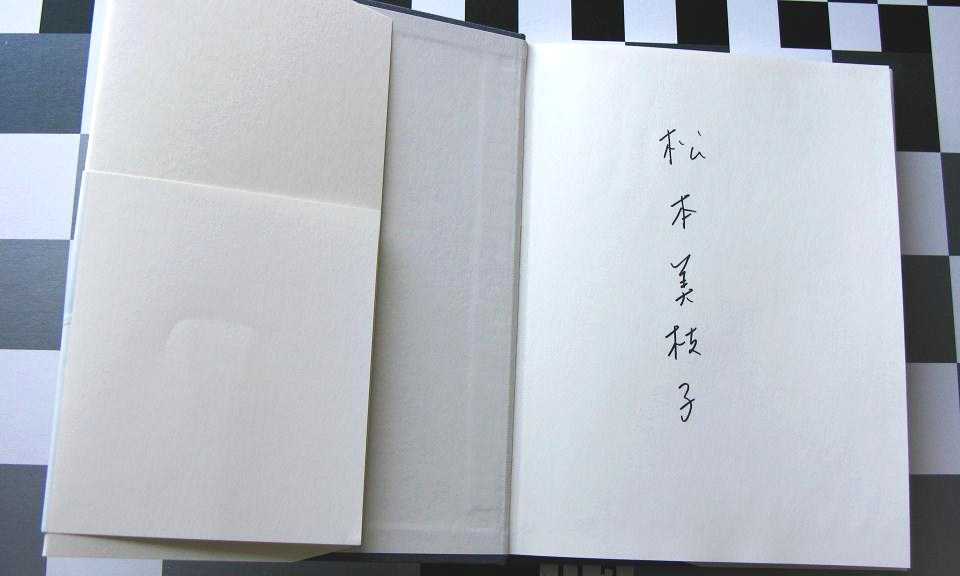 松本美枝子